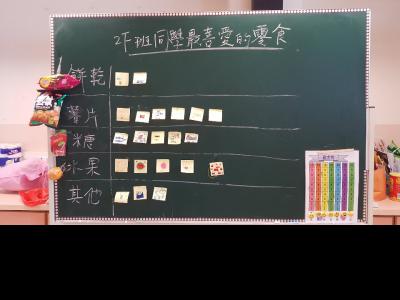 2F班同學最喜愛的零食
餅乾
薯片
糖
水果
其他